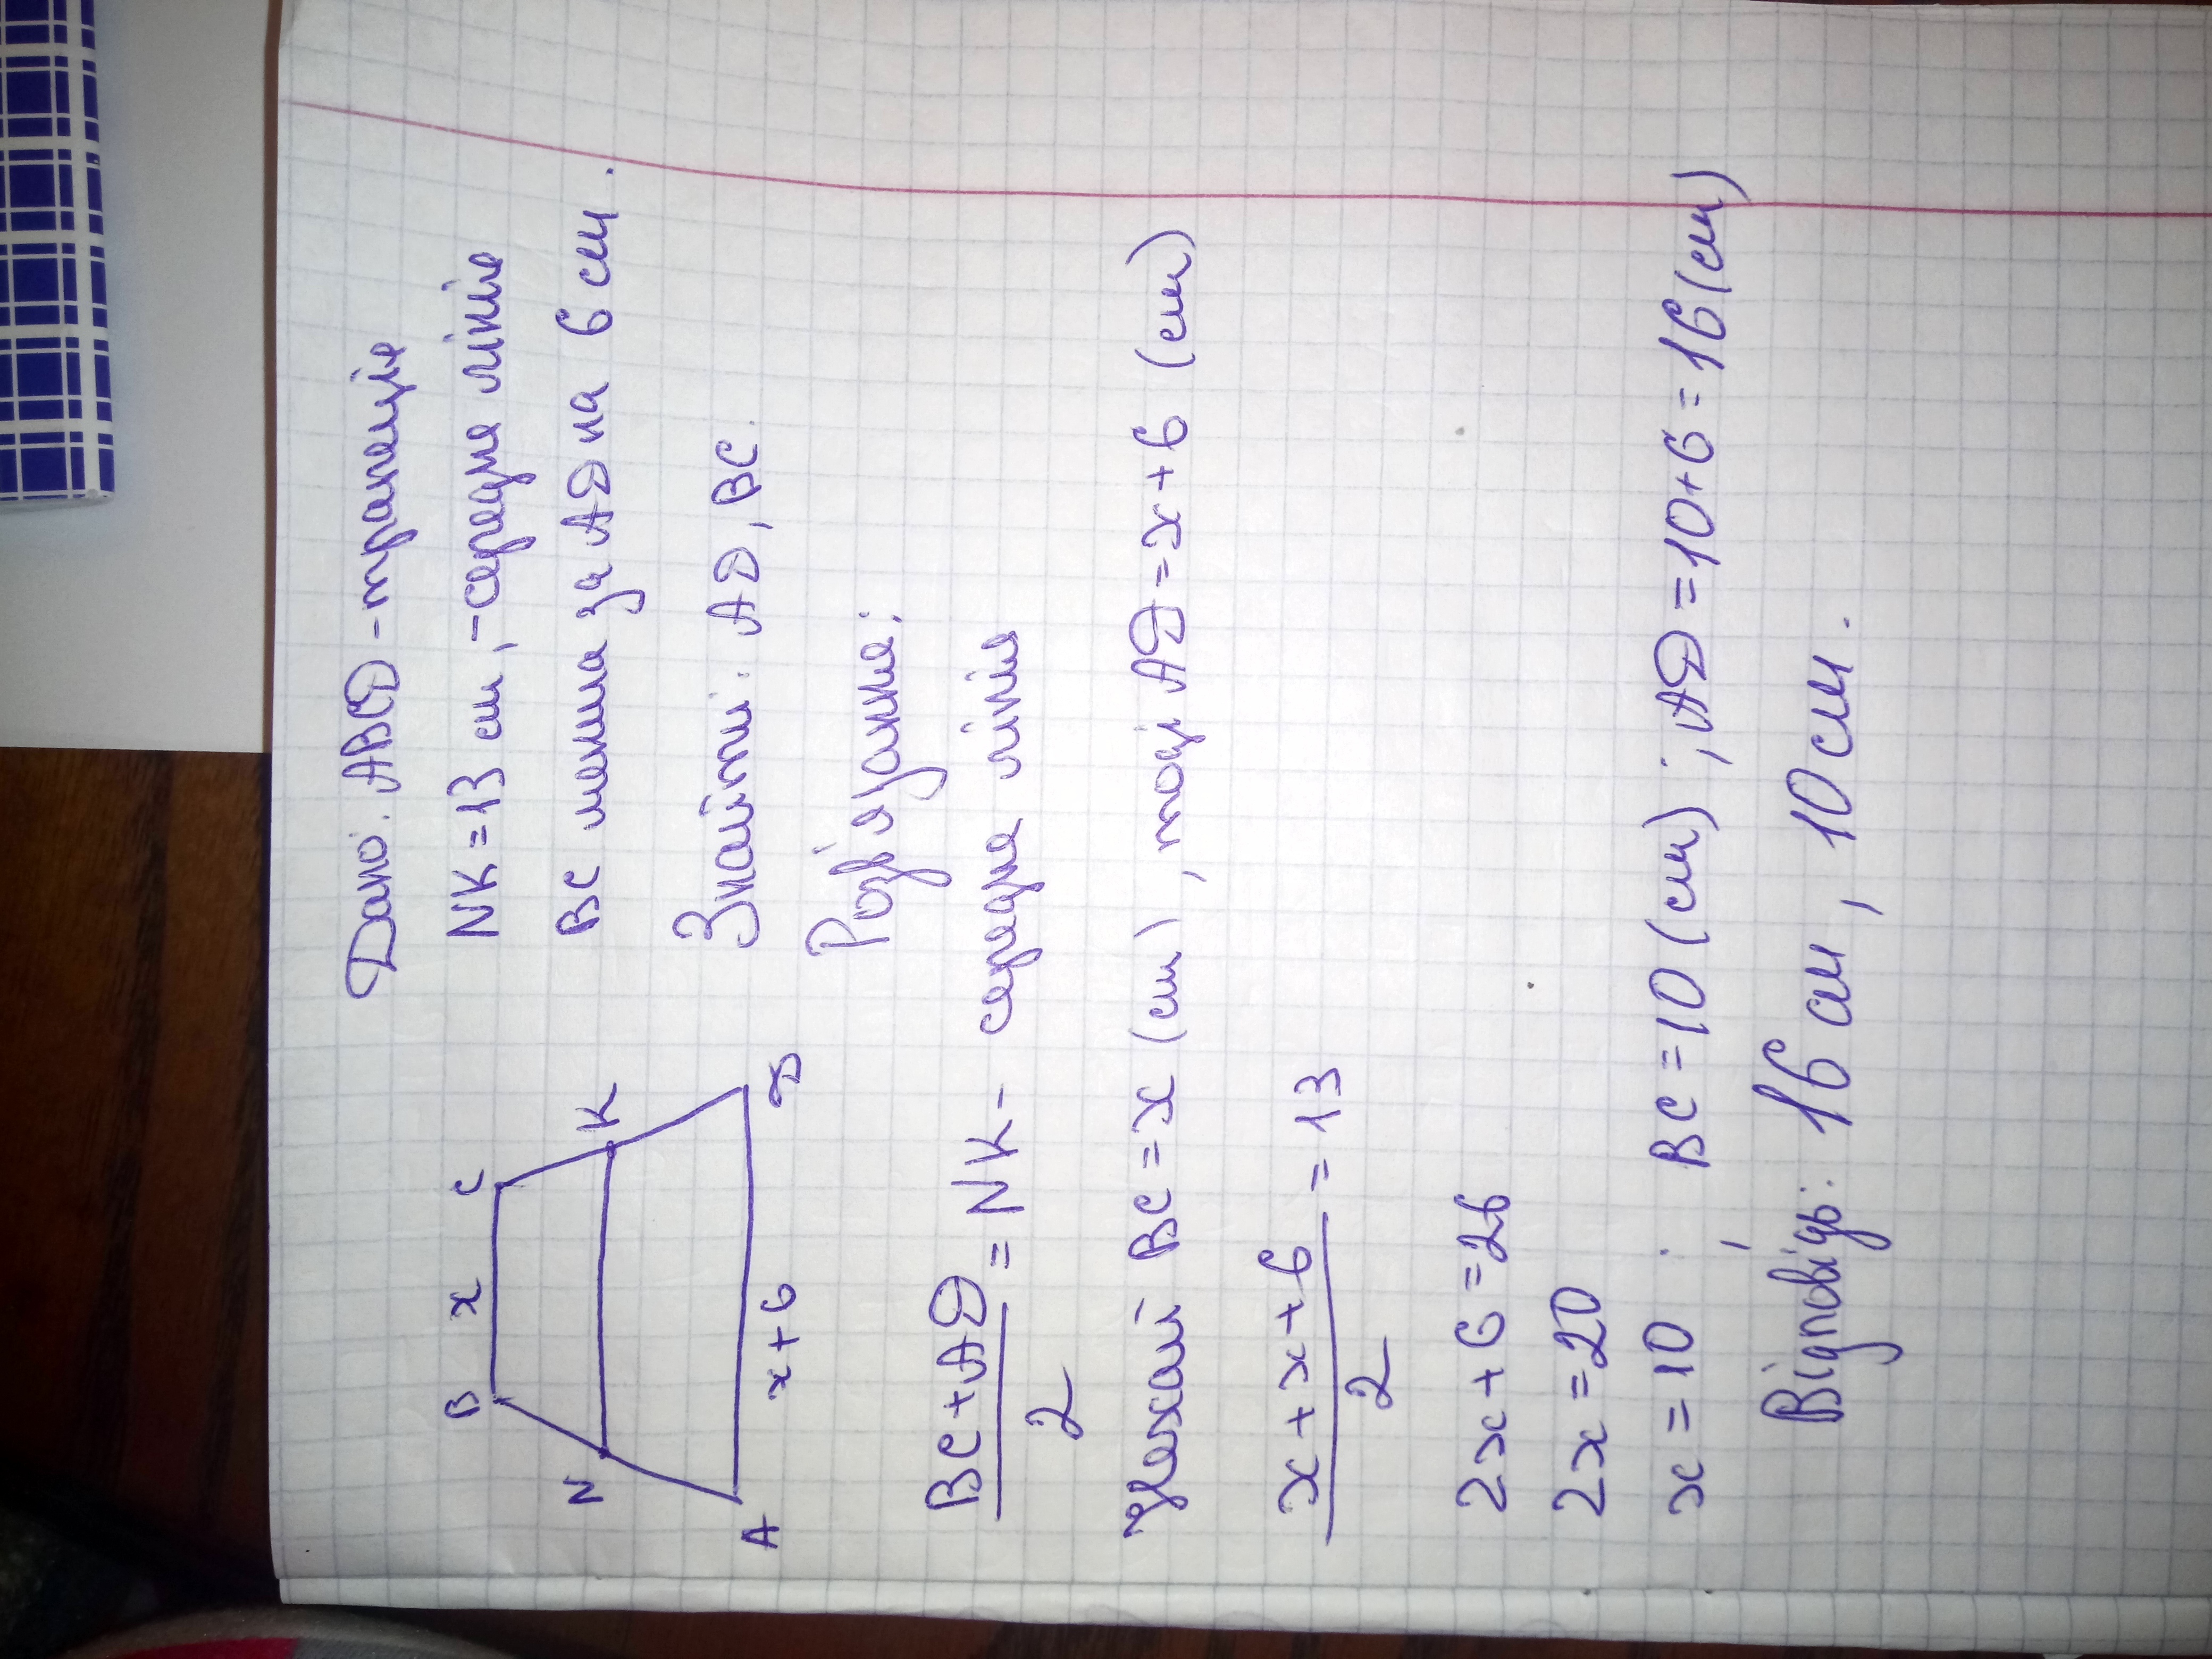 Дано: ABCD - трапеція
NK = 13 см, - середня лінія
BC менша за AD на 6 см.
Знайти: AD, BC.
Розв'язання:
B x C
N K
A x + 6 D
BC + AD / 2 = NK - середня лінія
Нехай BC = x (см), тоді AD = x + 6 (см)
x + x + 6 / 2 = 13
2x + 6 = 26
2x = 20
x = 10 ; BC = 10 (см) ; AD = 10 + 6 = 16 (см)
Відповідь: 16 см, 10 см.